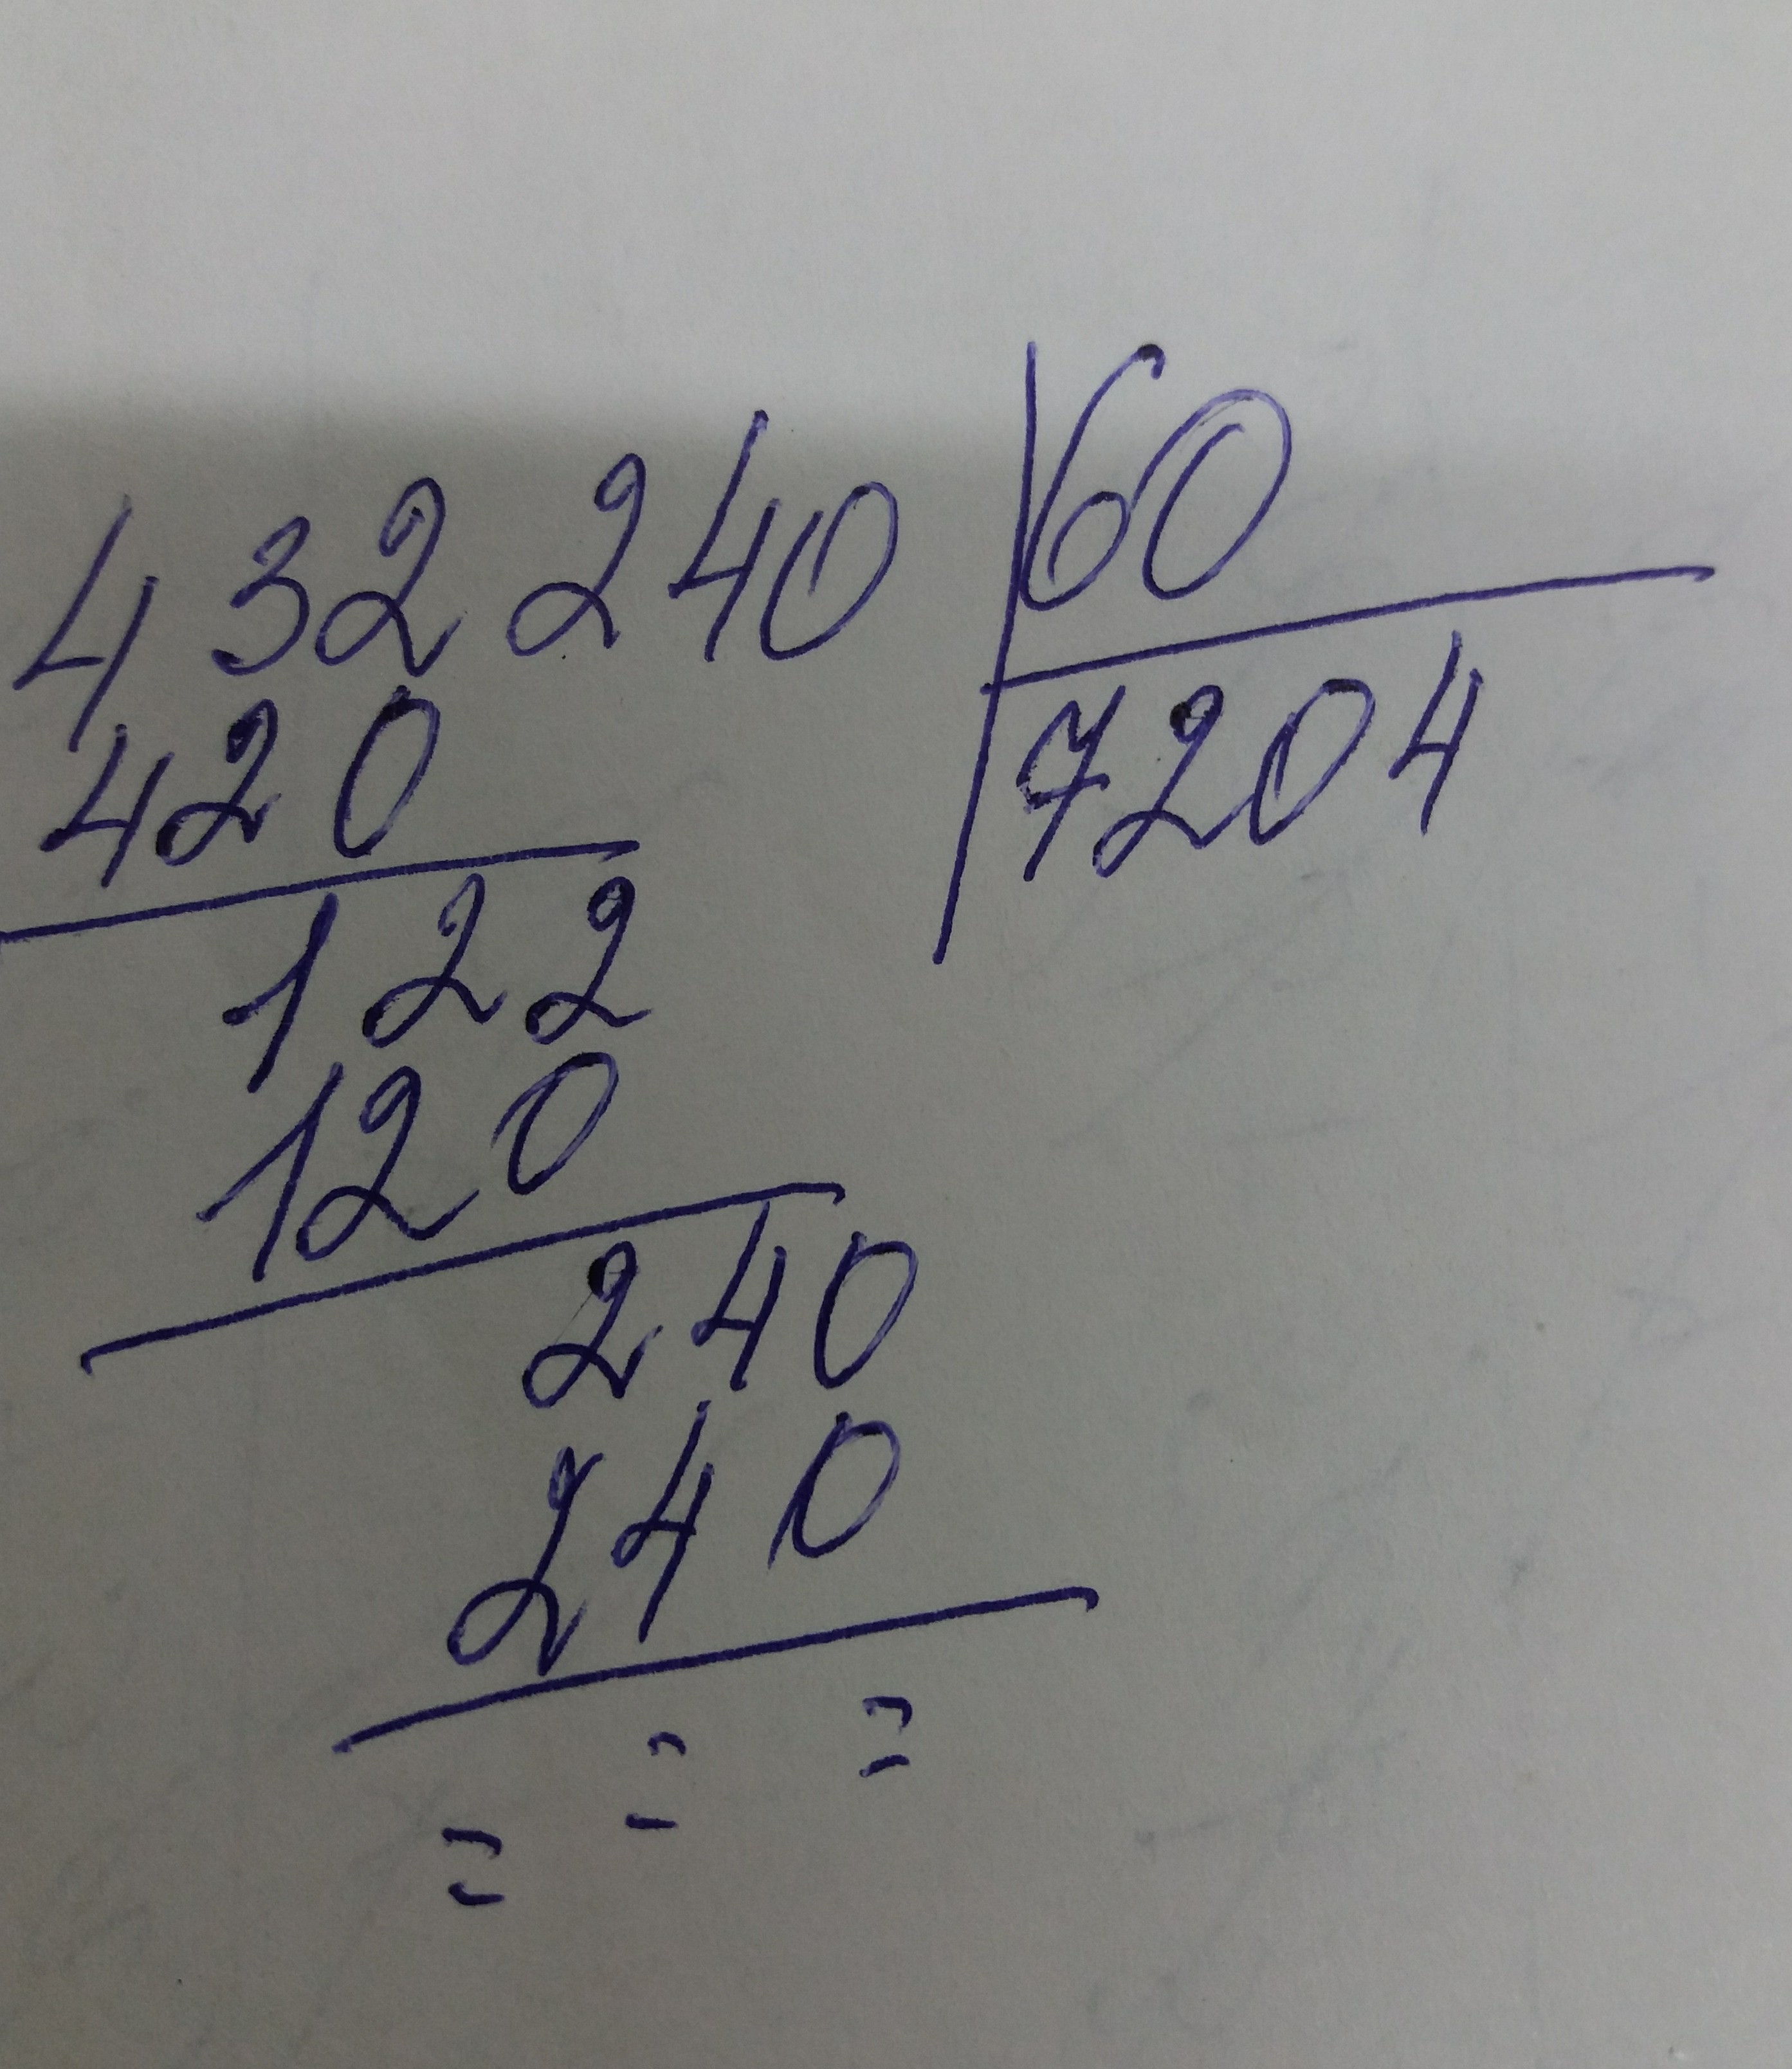 432 240 60
7204
420
122
120
240
240
= = =